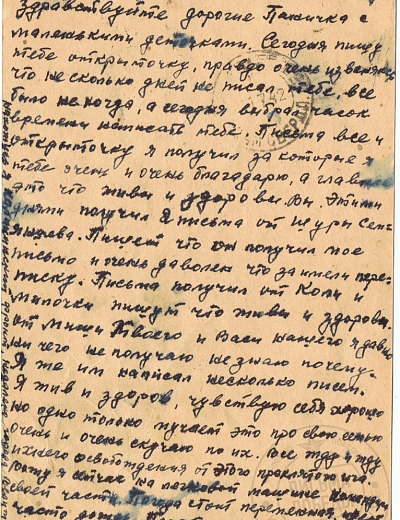 Здравствуйте дорогие Паничка с
маленькими деточками. Сегодня пишу
тебе открыточку, правдо очень извеняюсь
что несколько дней не писал тебе, все
было не когда, а сегодня выбрал часок
времени написать тебе. Письма все и
открыточку я получил за которые я
тебе очень и очень благодарю, а главное
это что живы и здоровы Вы. Этими
днями получил 2 письма от Шуры
Пишет что он получил мое
письмо и очень даволен что заимели пере-
писку. Письма получил от Коли и
Милочки пишут что живы и здоровы.
от Миши Твоего и Васи нашего я давно
ни чего не получаю не знаю почему.
Я же им написал несколько писем.
Я жив и здоров, чувствую себя хорошо
но одно только мучает это про свою семью
очень и очень скучаю по их. Все жду и жду
ихнего освобождения от этого проклятого ига.
я сейчас на легковой машине
своей части. Погода стоит
часто